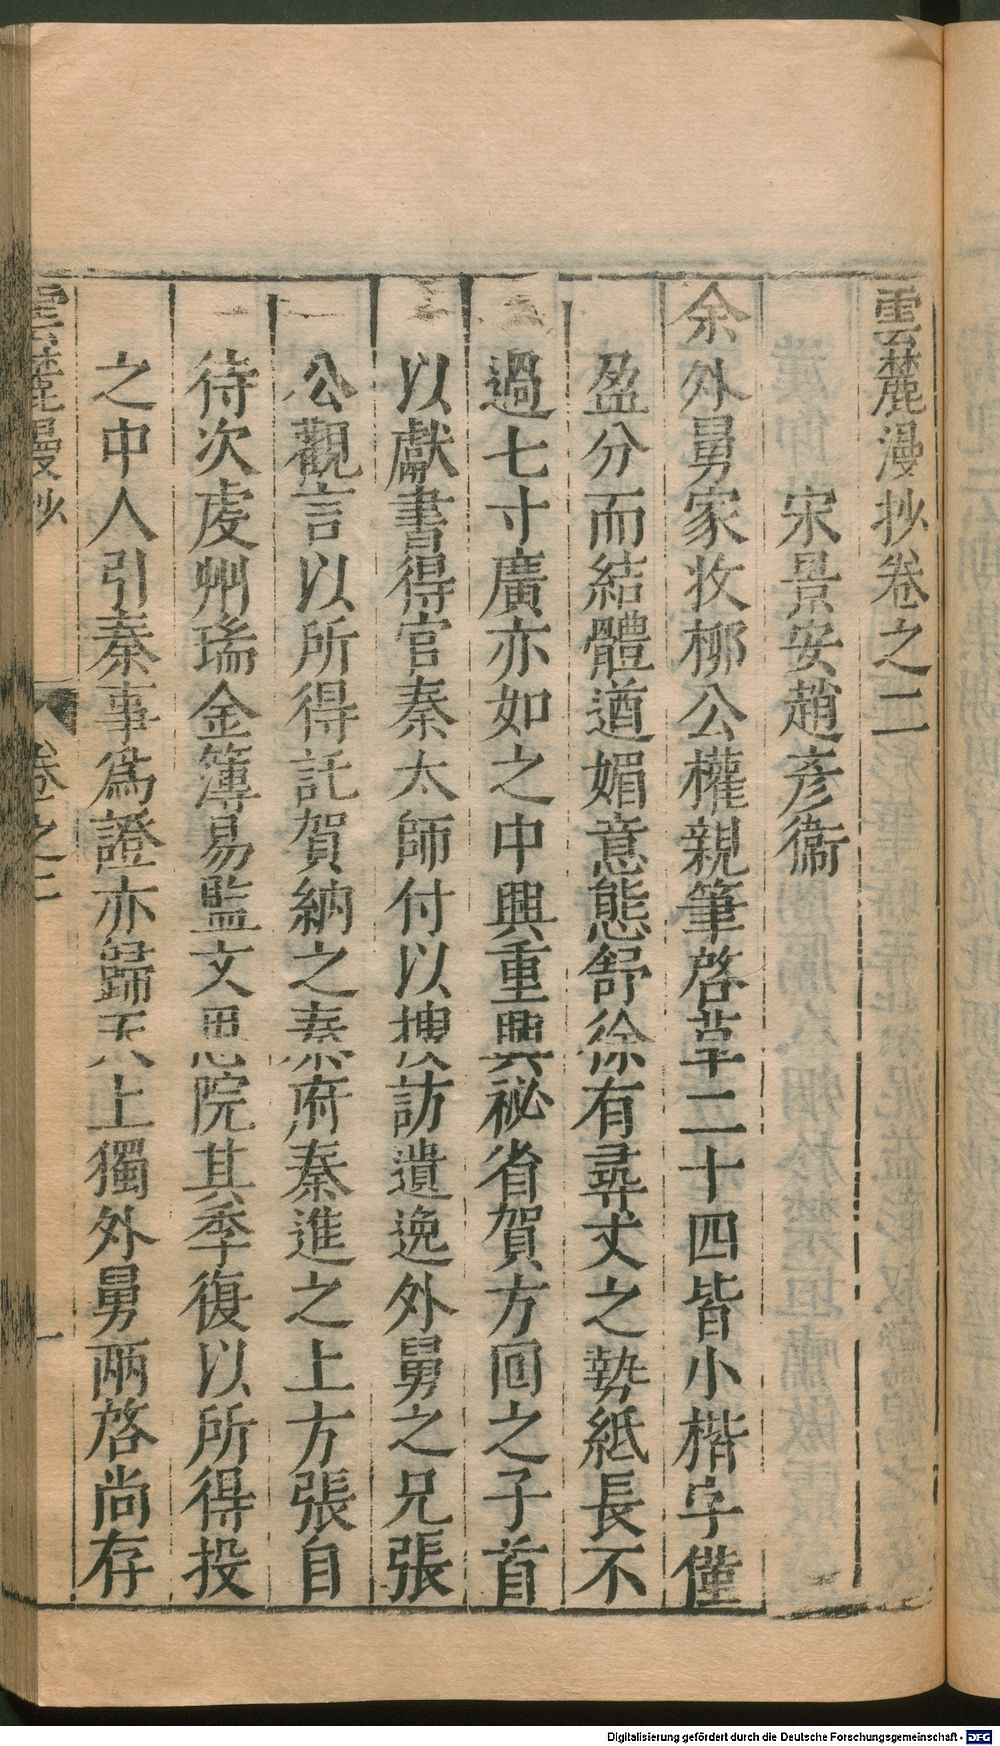 雲麓漫抄卷之二
宋景安趙彥衞
余外舅家收柳公權親筆啓草二十四皆小楷字僅
盈分而結體遒媚意態舒徐有尋丈之勢紙長不
過七寸廣亦如之中興重興祕省賀方回之子首
以獻書得官秦太師付以搜訪遺逸外舅之兄張
公觀言以所得託賀納之秦府秦進之上方張自
待次虔州瑞金簿易監文思院其季復以所得投
之中人引秦事爲證亦歸天上獨外舅兩啓尚存
雲麓漫抄
卷之二
一
Digitalisierung gefördert durch die Deutsche Forschungsgemeinschaft - DFG